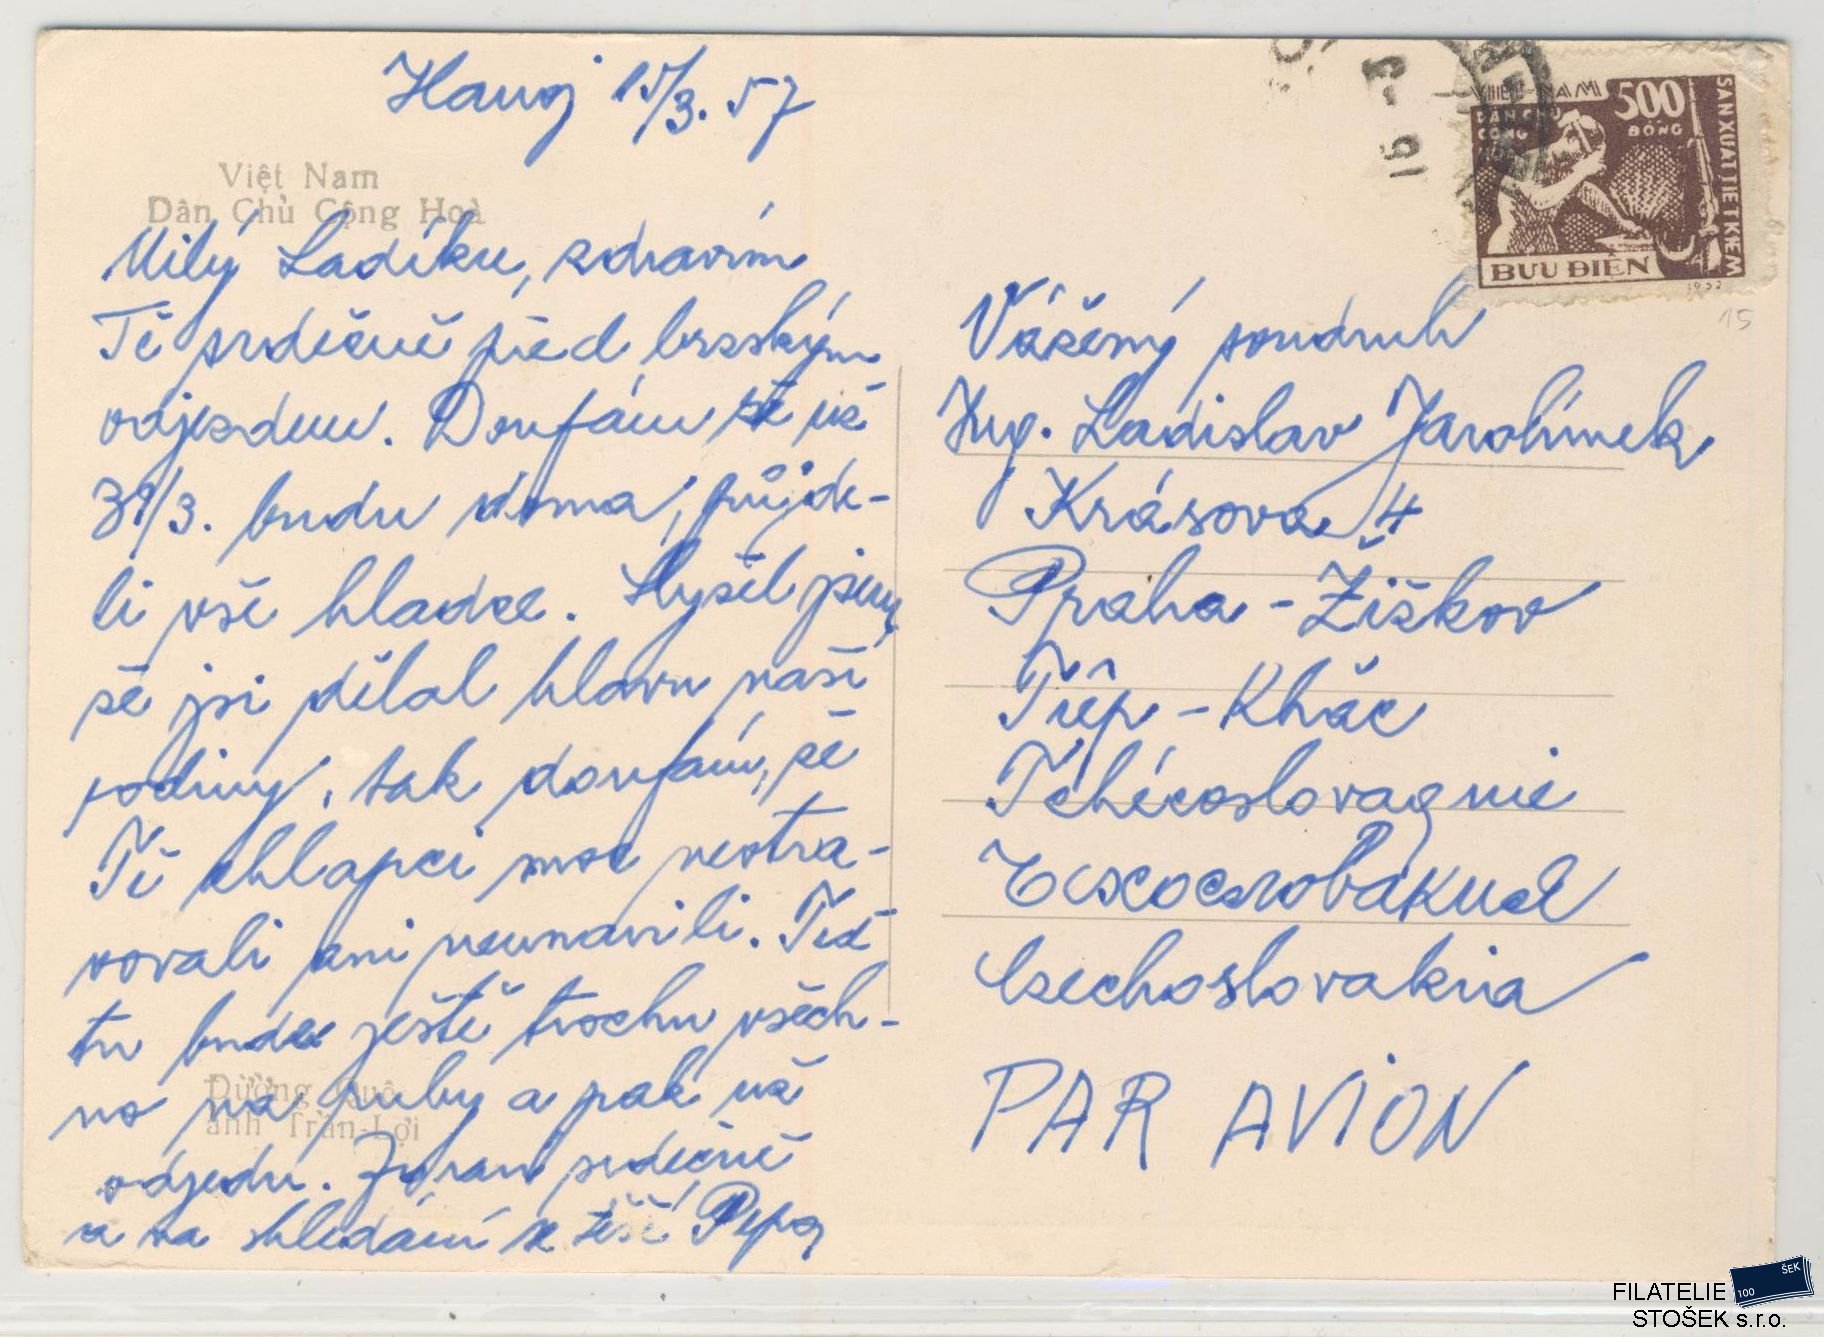 Hanoj 15/3. 57
Việt Nam
Dân Chủ Cộng Hoà
Milý Ladíku, zdravím
Tě srdečně před brzským
odjezdem. Doufám že už
31/3. budu doma, půjde-
li vše hladce. Slyšel jsem,
že jsi dělal hlavu naší
rodiny, tak doufám, že
Tě chlapci moc neotra-
vovali ani neunavili. Teď
tu bude ještě trochu všech-
no na huby a pak už
odjedu. Zdraví srdečně
a na shledání se těší Pepa
Đường
ảnh Trần-Lợi
16 -3
VIET-NAM
DÂN CHỦ
CỘNG
500
ĐỒNG
SẢN XUẤT TIẾT KIỆM
BƯU ĐIỆN
1952
15
Vážený soudruh
Ing. Ladislav Jarolímek
Krásova 4
Praha - Žižkov
Tiệp - Khắc
Tchécoslovaquie
Czechoslovakia
PAR AVION
FILATELIE
STOŠEK s.r.o.
100
ŠEK